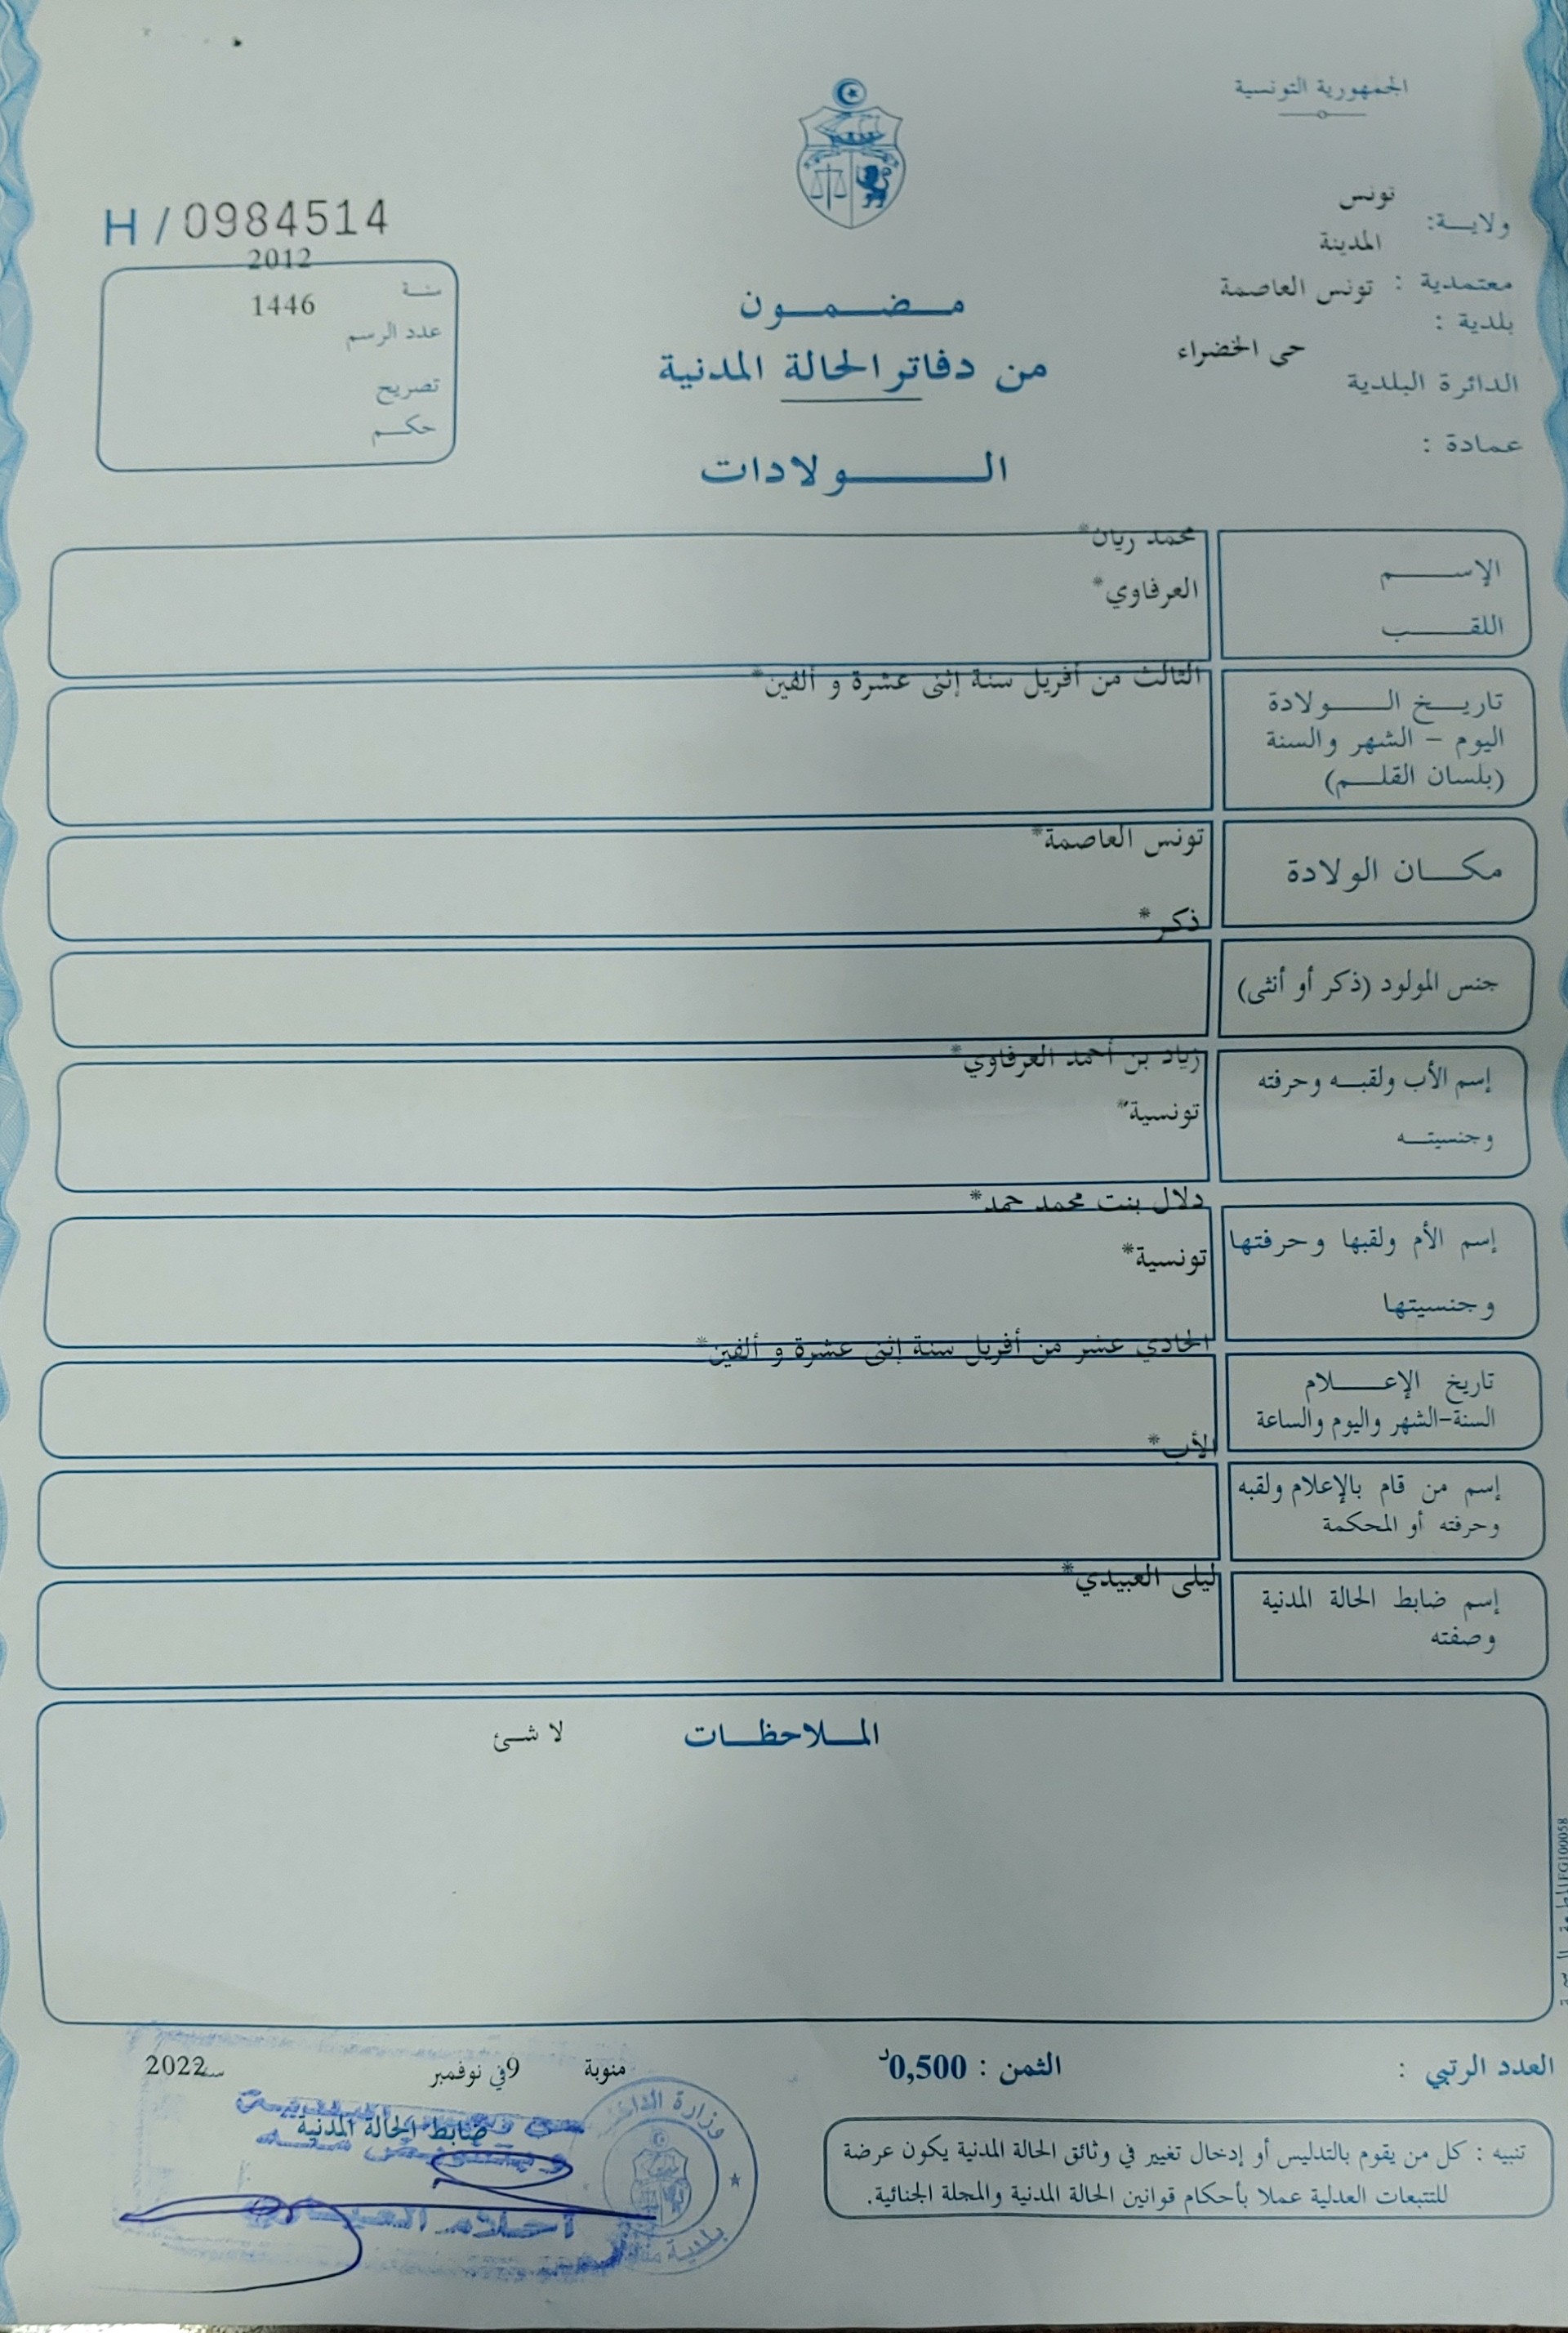 الجمهورية التونسية
H / 0984514
ولايــة: تونس
المدينة
معتمدية : تونس العاصمة
بلدية :
حى الخضراء
الدائرة البلدية
عمادة :
سنــة 2012
عدد الرسم 1446
تصريح
حكــم
مـــضـــمـــون
من دفاتر الحالة المدنية
الــــــولادات
الإســــم محمد ريان*
اللقــــب العرفاوي*
تاريــخ الــــولادة الثالث من أفريل سنة إثنى عشرة و ألفين*
اليوم – الشهر والسنة
(بلسان القلــم)
مكــــان الولادة تونس العاصمة*
جنس المولود (ذكر أو أنثى) ذكر*
إسم الأب ولقبــه وحرفته زياد بن أحمد العرفاوي*
وجنسيتــه تونسية*
إسم الأم ولقبها وحرفتها دلال بنت محمد حمد*
وجنسيتها تونسية*
تاريخ الإعــــلام الحادي عشر من أفريل سنة إثنى عشرة و ألفين*
السنة-الشهر واليوم والساعة
إسم من قام بالإعلام ولقبه الأب*
وحرفته أو المحكمة
إسم ضابط الحالة المدنية ليلى العبيدي*
وصفته
المــلاحظــات لا شئ
العدد الرتبي :
الثمن : 0,500د
منوبة في 9 نوفمبر سنة 2022
ضابط الحالة المدنية
وزارة الداخلية
بلدية
أحلام
تنبيه : كل من يقوم بالتدليس أو إدخال تغيير في وثائق الحالة المدنية يكون عرضة
للتتبعات العدلية عملا بأحكام قوانين الحالة المدنية والمجلة الجنائية.